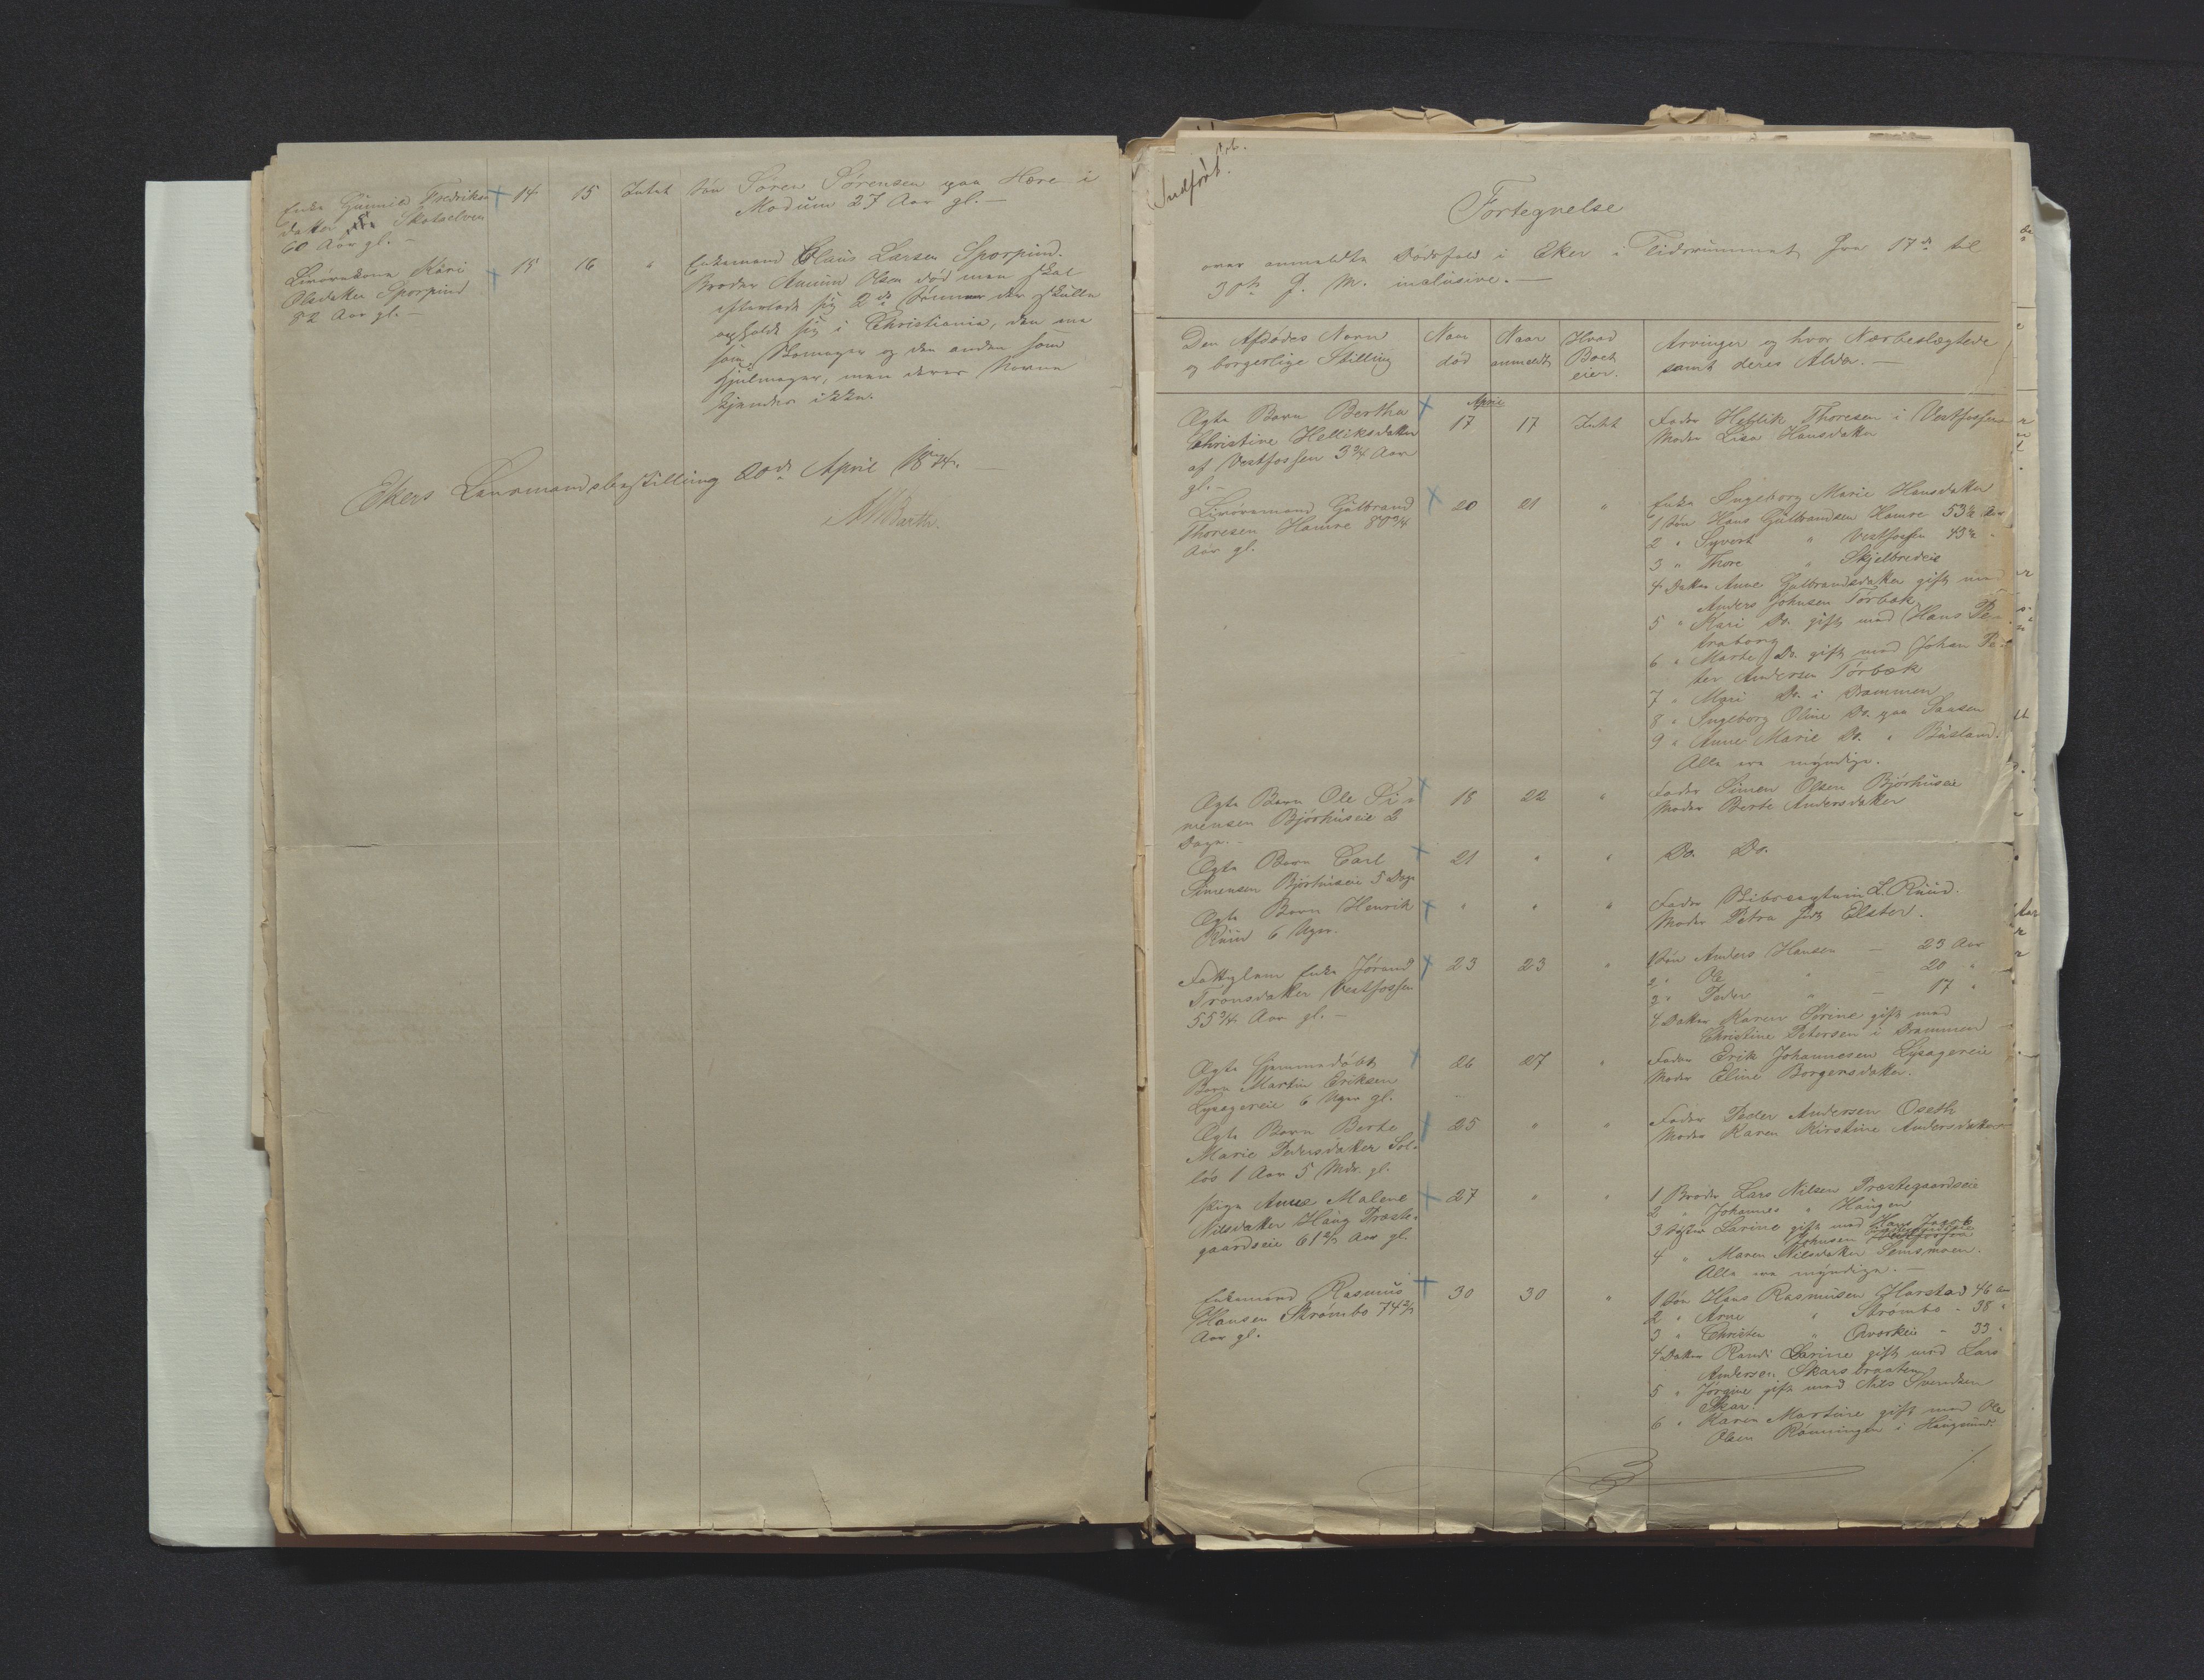 Enke Gunnild Fredriks- 14 15 Intet Søn Søren Sørensen paa Hære i
datter Skotselven Modum 27 Aar gl. —
60 Aar gl. —
Livørekone Kari 15 16 " Enkemand Claus Larsen Sporpind.
Olsdatter Sporpind Broder Amund Olsen død men skal
82 Aar gl. — efterlade sig 2de Sønner der skulle
opholde sig i Christiania, den ene
som Skomager og den anden som
Hjulmager, men deres Navne
kjendes ikke.
Ekers Lensmandsbestilling 20de April 1874. —
Barth.
Indført.
Fortegnelse
over anmeldte Dødsfald i Eker i Tidsrummet fra 17de til
30te d. M. inclusive. —
Den Afdødes Navn Naar Naar Hvad Arvinger og hvor Nærbeslægtede
og borgerlige Stilling død anmeldt Boet eier. samt deres Alder. —
April
Ægte Barn Berthe 17 17 Intet Fader Hellik Thoresen i Vestfossen
Christine Helliksdatter Moder Lisa Hansdatter
af Vestfossen 3 3/4 Aar
gl. —
Livøremand Gulbrand 20 21 " Enke Ingeborg Marie Hansdatter
Thoresen Hamre 80 3/4 1 Søn Hans Gulbrandsen Hamre 53 1/2 Aar
Aar gl. 2 " Syvert " Vestfossen 43 1/2 "
3 " Thore " Skjelbredeie
4 Datter Anne Gulbrandsdatter gift med
Anders Johnsen Torbæk
5 " Kari Do. gift med Hans
6 " Marte Do. gift med Johan Pe-
ter Andersen Torbæk
7 " Mari Do. i Drammen
8 " Ingeborg Oline Do. paa
9 " Anne Marie Do. "
Alle ere myndige.
Ægte Barn Ole Si- 18 22 " Fader Simen Olsen Bjørhuseie
mensen Bjørhuseie 2 Moder Berte Andersdatter
Dage. —
Ægte Barn Carl 21 " " Do. Do.
Simensen Bjørhuseie 5 Dage
Ægte Barn Henrik " " " Fader L. Ruud.
Ruud 6 Uger. Moder Petra født Elster.
Fattiglem Enke Jørand 23 23 " 1 Søn Anders Hansen — 23 Aar
Tronsdatter Vestfossen 2 " Ole " — 20 "
55 3/4 Aar gl. — 3 " Peder " — 17 "
4 Datter Karen Serine gift med
Christine Petersen i Drammen
Ægte hjemmedøbt 26 27 " Fader Erik Johannesen Lysagereie
Barn Martin Eriksen Moder Eline Borgersdatter.
Lysagereie 6 Uger gl.
Ægte Barn Berte 25 " " Fader Peder Andersen Oseth
Marie Pedersdatter Sol- Moder Karen Kirstine Andersdatter
løs 1 Aar 5 Mdr. gl.
Pige Anne Malene 27 " " 1 Broder Lars Nilsen Præstegaardseie
Nilsdatter Haug Præste- 2 " Johannes " Haugen
gaardseie 61 2/3 Aar gl. 3 Søster Larine gift med Hans Jacob
Johnsen
4 " Maren Nilsdatter Semsmoen.
Alle ere myndige. —
Enkemand Rasmus 30 30 " 1 Søn Hans Rasmusen Harstad 46 Aar
Hansen Strømbo 74 2/3 2 " Arne " Strømbo - 38 "
Aar gl. 3 " Christen " - 33 "
4 Datter Randi Larine gift med Lars
Andersen Skarsbraaten
5 " Jørgine gift med Nils Svendsen
Skar.
6 " Karen Martine gift med Ole
Olsen Rønningen i Haugsund.